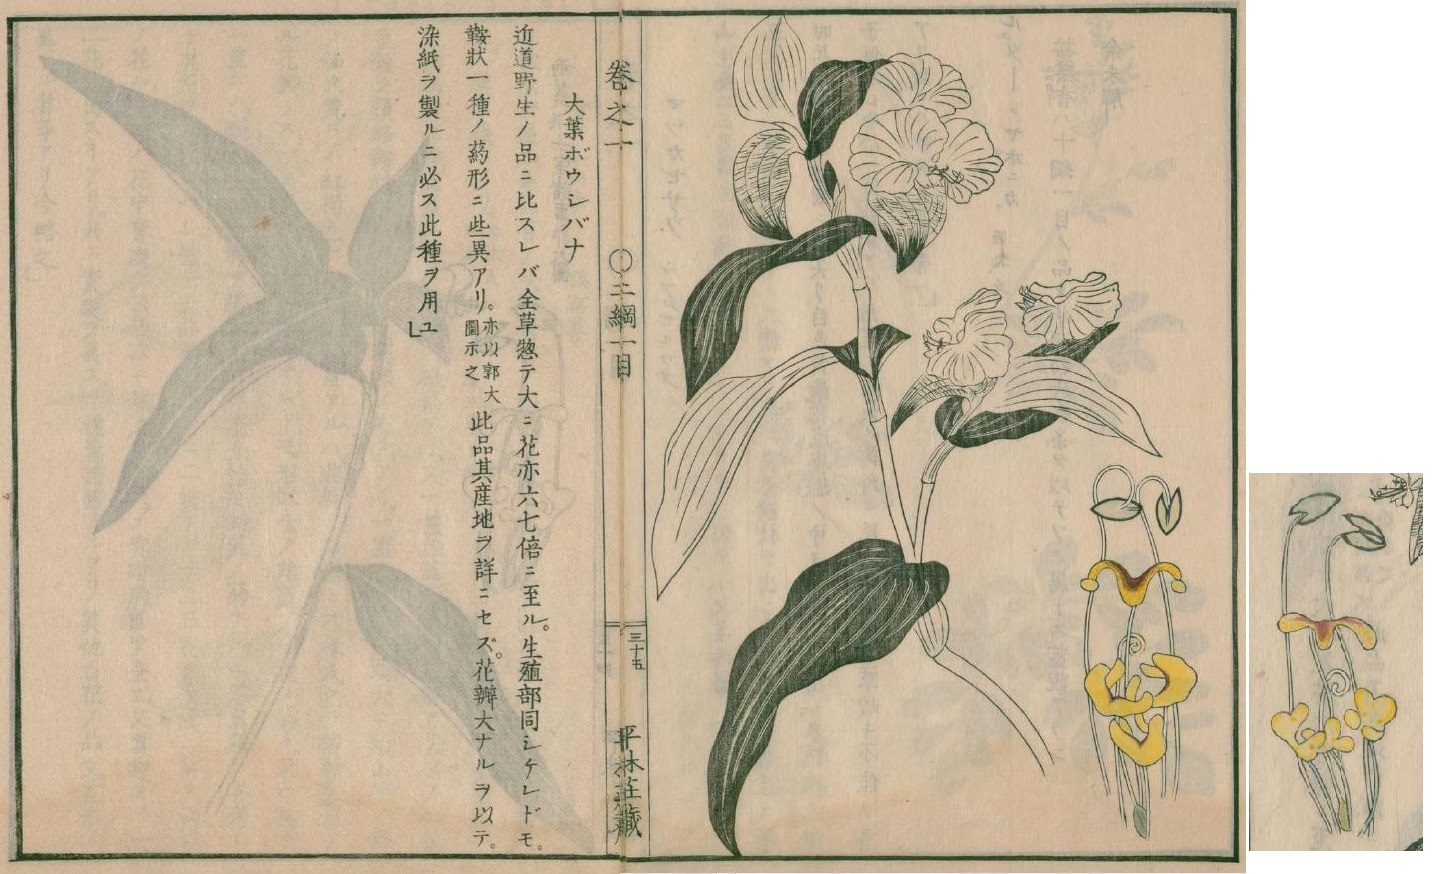 巻之一
〇二綱一目
三十五
平林荘蔵
大葉ボウシバナ
近道野生ノ品ニ比スレバ全草惣テ大ニ花亦六七倍ニ至ル。生殖部同シケレドモ。
鞍状一種ノ葯形ニ些異アリ。亦以郭大圖示之此品其産地ヲ詳ニセズ。花瓣大ナルヲ以テ。
染紙ヲ製ルニ必ス此種ヲ用ユ」